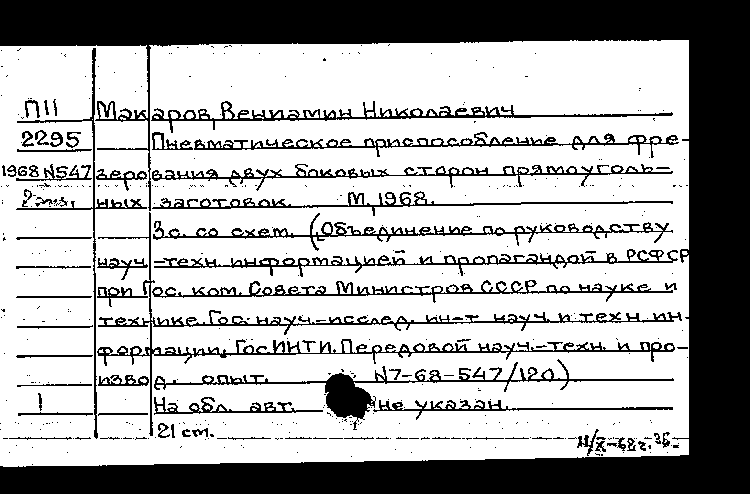 П11 Макаров, Вениамин Николаевич
2295 Пневматическое приспособление для фре-
1968 N547 зерования двух боковых сторон прямоуголь-
2 экз. ных заготовок. М, 1968.
3 с. со схем. (Объединение по руководству
науч.-техн. информацией и пропагандой в РСФСР
при Гос. ком. Совета Министров СССР по науке и
технике. Гос. науч.-исслед. ин-т науч. и техн. ин-
формации. ГосИНТИ. Передовой науч.-техн. и про-
извод. опыт. N7-68-547/120.)
1 На обл. авт. не указан.
21 cm.